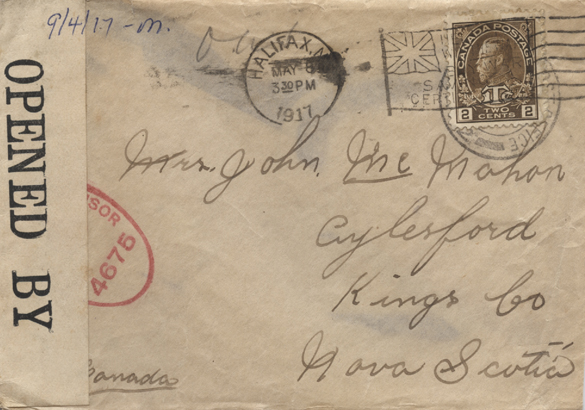 9/4/17-m.
OPENED BY
HALIFAX, N
MAY-8
3 30 PM
1917
CANADA POSTAGE
1Tc
2 TWO CENTS 2
Mrs. John Mc Mahon
Aylesford
Kings Co
Nova Scotia
SOR
4675
Canada